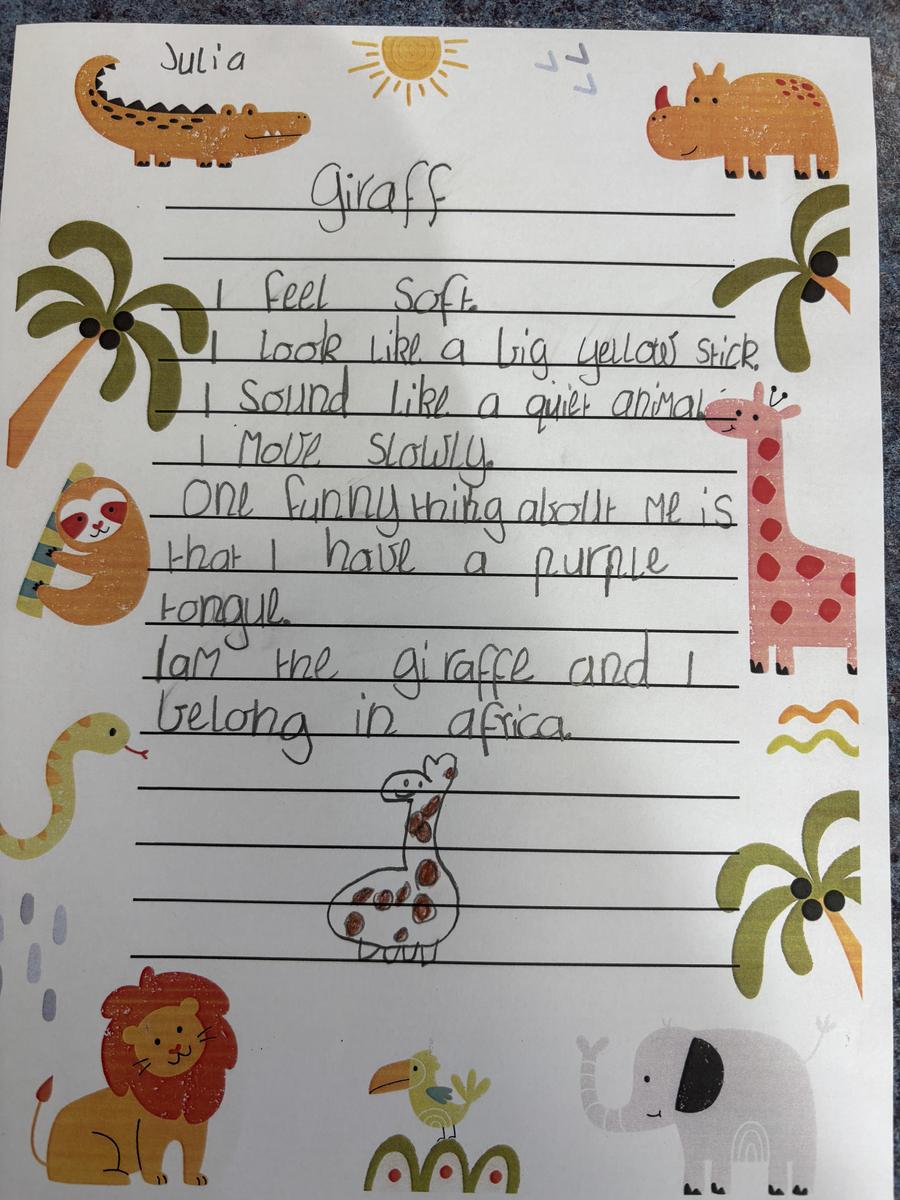 Julia
giraff
I feel soft.
I look like a big yellow stick.
I sound like a quiet animal.
I move slowly.
One funny thing about me is
that I have a purple
tongue.
I am the giraffe and I
belong in africa.